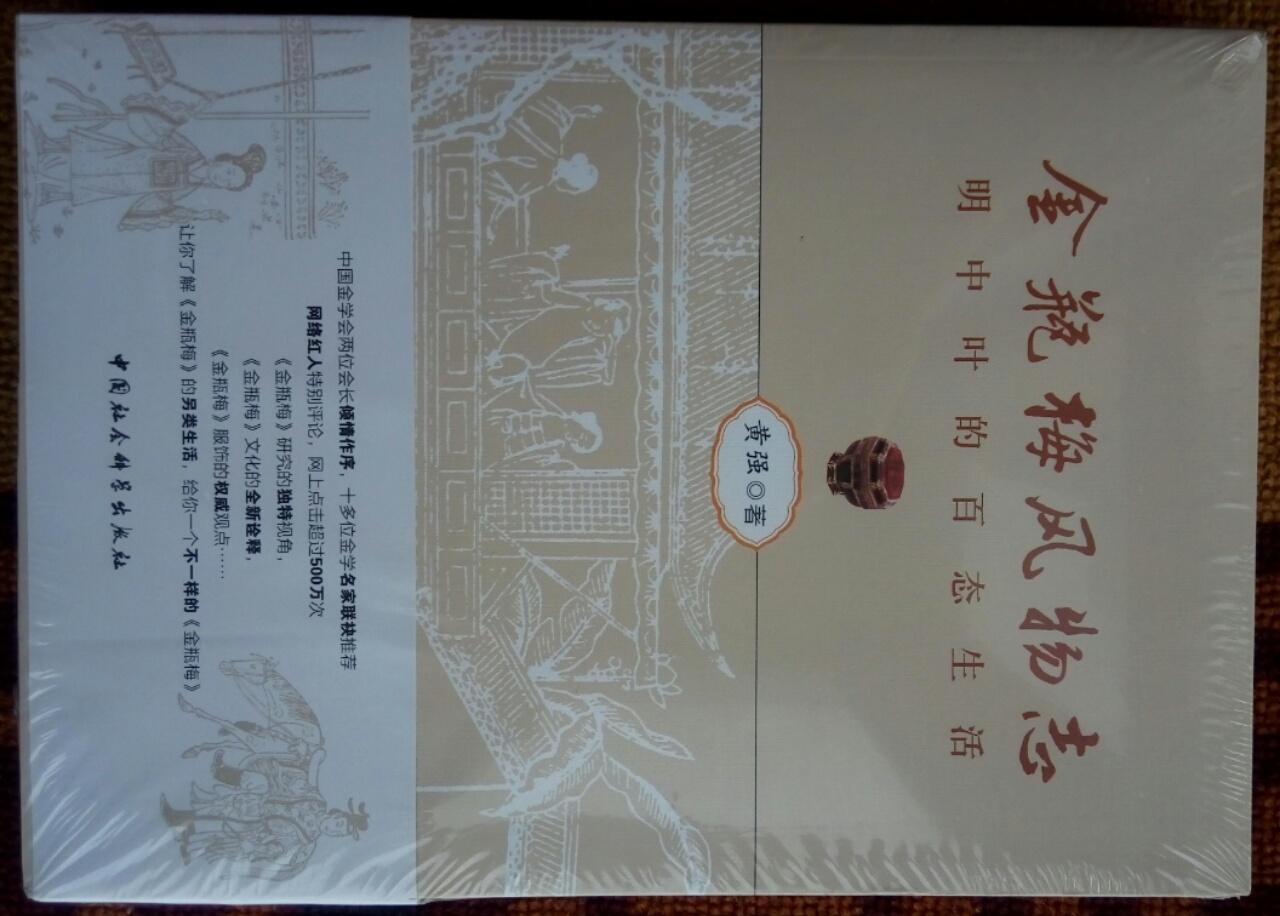 金瓶梅风物志
明中叶的百态生活
黄强◎著
中国金学会两位会长倾情作序，十多位金学名家联袂推荐
网络红人特别评论，网上点击超过500万次
《金瓶梅》研究的独特视角，
《金瓶梅》文化的全新诠释，
《金瓶梅》服饰的权威观点……
让你了解《金瓶梅》的另类生活，给你一个不一样的《金瓶梅》
中国社会科学出版社